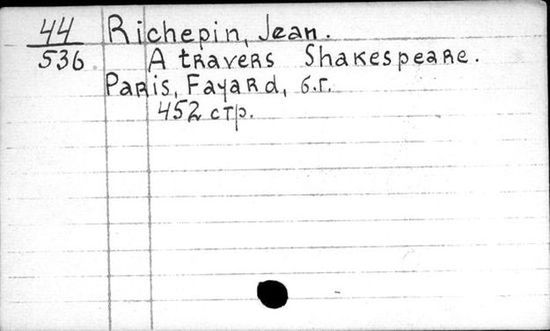 44 Richepin, Jean.
536 A travers Shakespeare.
Paris, Fayard, б.г.
452 стр.